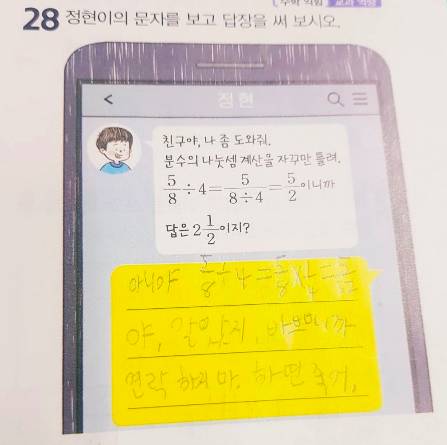 28 정현이의 문자를 보고 답장을 써 보시오.
정현
친구야, 나 좀 도와줘.
분수의 나눗셈 계산을 자꾸만 틀려.
5/8 ÷ 4 = 5/(8÷4) = 5/2 이니까
답은 2 1/2 이지?
아니야 5/8 ÷ 4 = 5/8 × 1/4 = 5/32
야, 알았지, 바쁘니까
연락 하지 마. 하면 죽어,